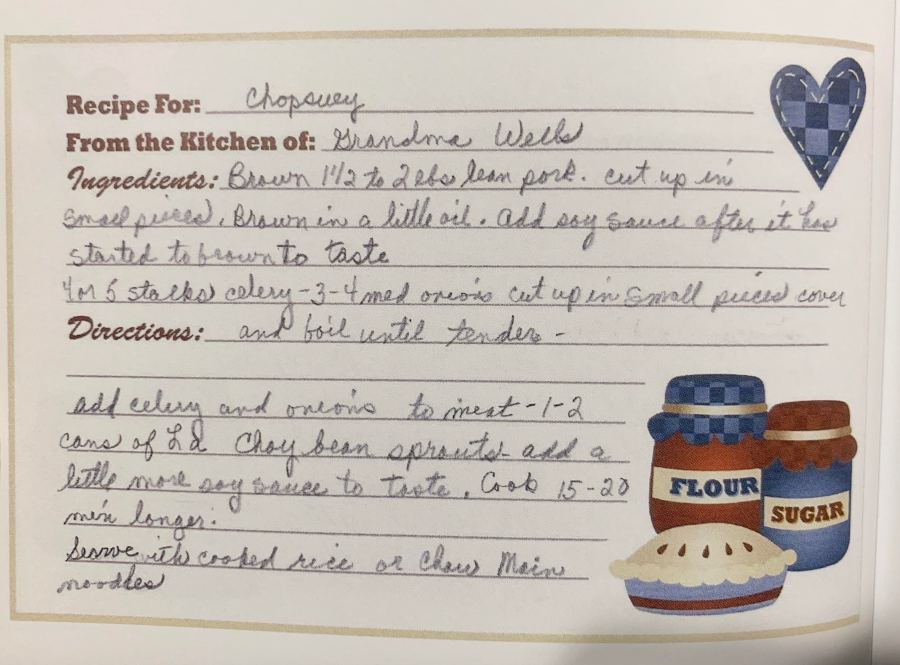 Recipe For: Chopsuey
From the Kitchen of: Grandma Wells
Ingredients: Brown 1 1/2 to 2 lbs lean pork. cut up in
small pieces. Brown in a little oil. add soy sauce after it has
started to brown to taste
4 or 5 stalks celery - 3-4 med onions cut up in small pieces cover
Directions: and boil until tender -
add celery and onions to meat - 1-2
cans of La Choy bean sprouts - add a
little more soy sauce to taste. Cook 15-20
min longer.
Serve with cooked rice or Chow Main
noodles
FLOUR
SUGAR